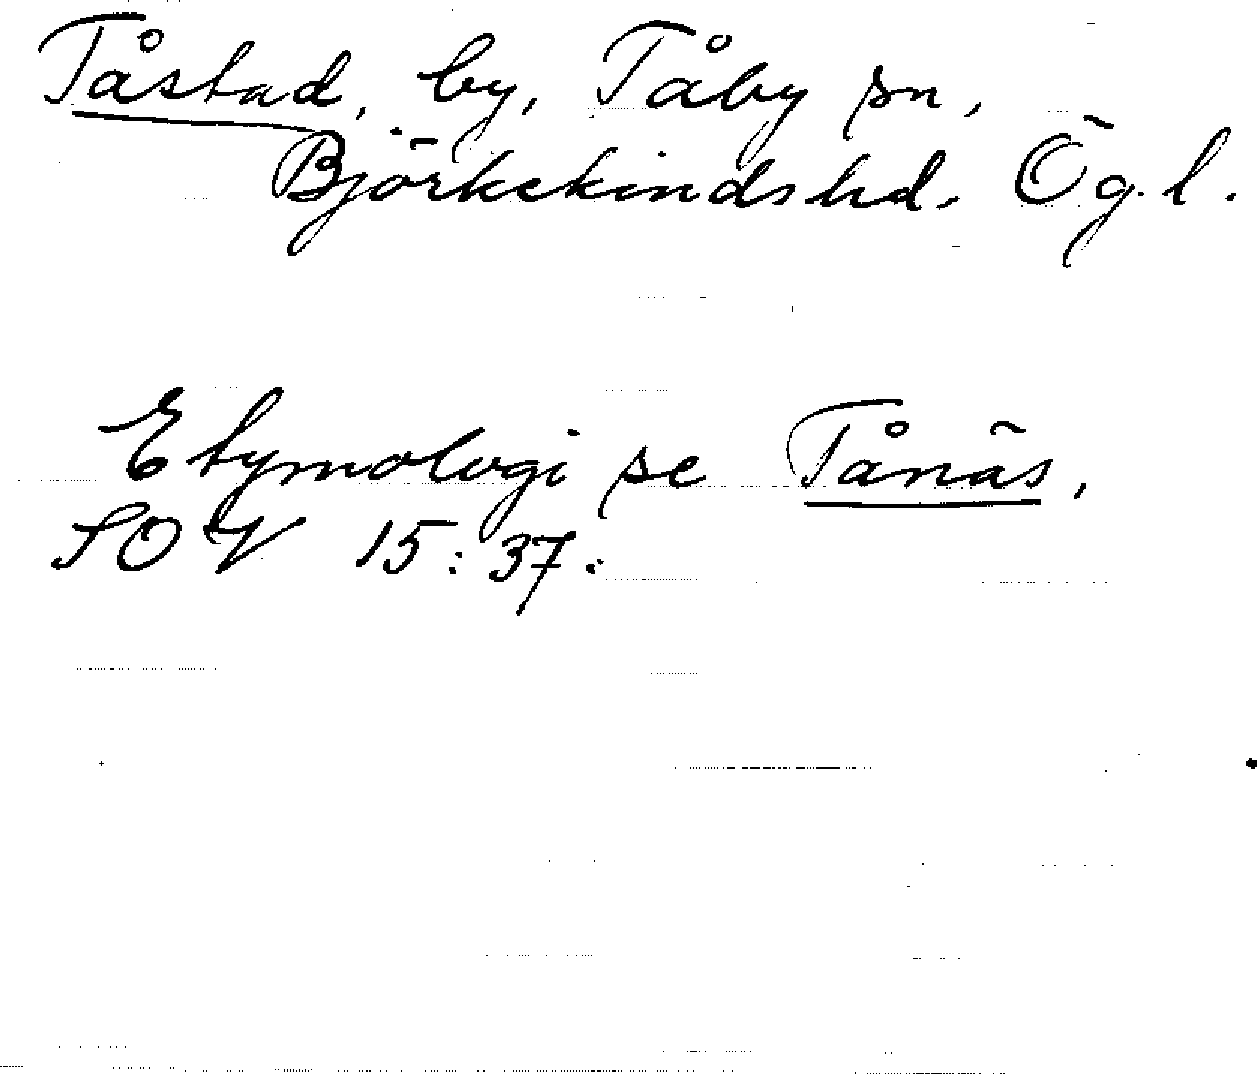 Tåstad, by, Tåby sn,
Björkekinds hd. Ög.l.
Etymologi se Tånäs,
SOV 15:37.